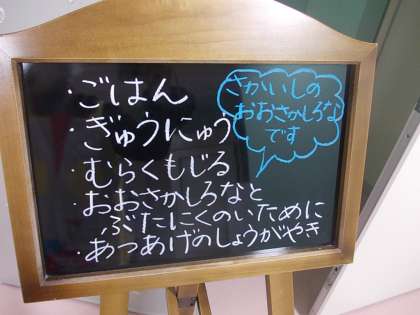 さかいしの
おおさかしろな
です
・ごはん
・ぎゅうにゅう
・むらくもじる
・おおさかしろなと
ぶたにくのいために
・あつあげのしょうがやき